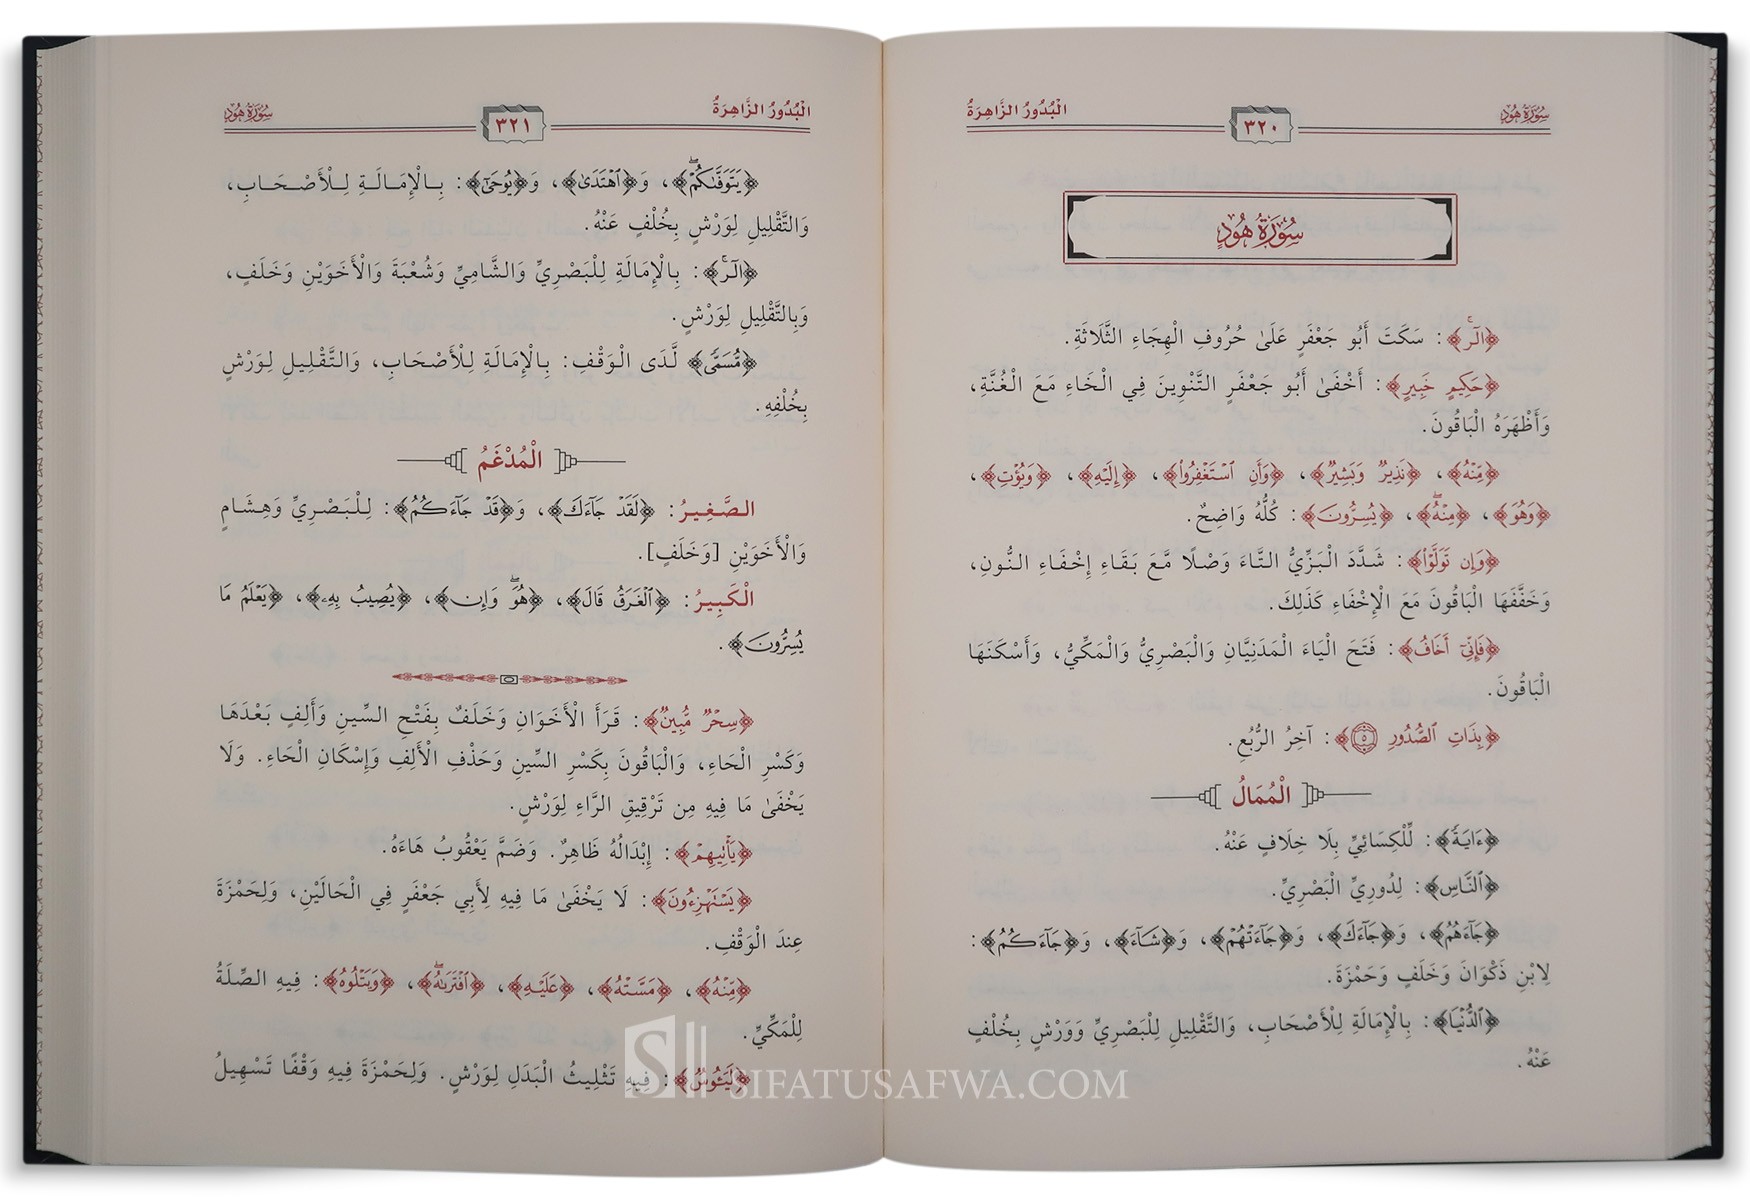 سُورَةُ هُودٍ
٣٢٠
الْبُدُورُ الزَّاهِرَةُ
سُورَةُ هُودٍ
﴿الٓرۚ﴾: سَكَتَ أَبُو جَعْفَرٍ عَلَىٰ حُرُوفِ الْهِجَاءِ الثَّلَاثَةِ.
﴿حَكِيمٍ خَبِيرٍ﴾: أَخْفَىٰ أَبُو جَعْفَرٍ التَّنْوِينَ فِي الْخَاءِ مَعَ الْغُنَّةِ،
وَأَظْهَرَهُ الْبَاقُونَ.
﴿مِّنْهُ﴾، ﴿نَذِيرٌ وَبَشِيرٌ﴾، ﴿وَأَنِ ٱسْتَغْفِرُوا۟﴾، ﴿إِلَيْهِ﴾، ﴿وَيُؤْتِ﴾،
﴿وَهُوَ﴾، ﴿مِنْهُۚ﴾، ﴿يُسِرُّونَ﴾: كُلُّهُ وَاضِحٌ.
﴿وَإِن تَوَلَّوْا۟﴾: شَدَّدَ الْبَزِّيُّ التَّاءَ وَصْلًا مَّعَ بَقَاءِ إِخْفَاءِ النُّونِ،
وَخَفَّفَهَا الْبَاقُونَ مَعَ الْإِخْفَاءِ كَذَلِكَ.
﴿فَإِنِّىٓ أَخَافُ﴾: فَتَحَ الْيَاءَ الْمَدَنِيَّانِ وَالْبَصْرِيُّ وَالْمَكِّيُّ، وَأَسْكَنَهَا
الْبَاقُونَ.
﴿بِذَاتِ ٱلصُّدُورِ ٥﴾: آخِرُ الرُّبُعِ.
الْمُمَالُ
﴿ءَايَةً﴾: لِّلْكِسَائِيِّ بِلَا خِلَافٍ عَنْهُ.
﴿ٱلنَّاسِ﴾: لِدُورِيِّ الْبَصْرِيِّ.
﴿جَآءَهُمُ﴾، وَ﴿جَآءَكَ﴾، وَ﴿جَآءَتْهُمْ﴾، وَ﴿شَآءَ﴾، وَ﴿جَآءَكُمُ﴾:
لِابْنِ ذَكْوَانَ وَخَلَفٍ وَحَمْزَةَ.
﴿ٱلدُّنْيَا﴾: بِالْإِمَالَةِ لِلْأَصْحَابِ، وَالتَّقْلِيلِ لِلْبَصْرِيِّ وَوَرْشٍ بِخُلْفٍ
عَنْهُ.
الْبُدُورُ الزَّاهِرَةُ
٣٢١
سُورَةُ هُودٍ
﴿يَتَوَفَّىٰكُمْۖ﴾، وَ﴿ٱهْتَدَىٰ﴾، وَ﴿يُوحَىٰٓ﴾: بِالْإِمَالَةِ لِلْأَصْحَابِ،
وَالتَّقْلِيلِ لِوَرْشٍ بِخُلْفٍ عَنْهُ.
﴿الٓرۚ﴾: بِالْإِمَالَةِ لِلْبَصْرِيِّ وَالشَّامِيِّ وَشُعْبَةَ وَالْأَخَوَيْنِ وَخَلَفٍ،
وَبِالتَّقْلِيلِ لِوَرْشٍ.
﴿مُّسَمًّى﴾ لَّدَى الْوَقْفِ: بِالْإِمَالَةِ لِلْأَصْحَابِ، وَالتَّقْلِيلِ لِوَرْشٍ
بِخُلْفِهِ.
الْمُدْغَمُ
الصَّغِيرُ: ﴿لَقَدْ جَآءَكَ﴾، وَ﴿قَدْ جَآءَكُمُ﴾: لِلْبَصْرِيِّ وَهِشَامٍ
وَالْأَخَوَيْنِ [وَخَلَفٍ].
الْكَبِيرُ: ﴿ٱلْغَرَقُ قَالَ﴾، ﴿هُوَۖ وَإِن﴾، ﴿يُصِيبُ بِهِۦ﴾، ﴿يَعْلَمُ مَا
يُسِرُّونَ﴾.
﴿سِحْرٌ مُّبِينٌ﴾: قَرَأَ الْأَخَوَانِ وَخَلَفٌ بِفَتْحِ السِّينِ وَأَلِفٍ بَعْدَهَا
وَكَسْرِ الْحَاءِ، وَالْبَاقُونَ بِكَسْرِ السِّينِ وَحَذْفِ الْأَلِفِ وَإِسْكَانِ الْحَاءِ. وَلَا
يَخْفَىٰ مَا فِيهِ مِن تَرْقِيقِ الرَّاءِ لِوَرْشٍ.
﴿يَأْتِيهِمْ﴾: إِبْدَالُهُ ظَاهِرٌ. وَضَمَّ يَعْقُوبُ هَاءَهُ.
﴿يَسْتَهْزِءُونَ﴾: لَا يَخْفَىٰ مَا فِيهِ لِأَبِي جَعْفَرٍ فِي الْحَالَيْنِ، وَلِحَمْزَةَ
عِندَ الْوَقْفِ.
﴿مِنْهُ﴾، ﴿مَسَّتْهُ﴾، ﴿عَلَيْهِ﴾، ﴿ٱفْتَرَىٰهُۖ﴾، ﴿وَيَتْلُوهُ﴾: فِيهِ الصِّلَةُ
لِلْمَكِّيِّ.
﴿لَيَـُٔوسٌ﴾: فِيهِ تَثْلِيثُ الْبَدَلِ لِوَرْشٍ. وَلِحَمْزَةَ فِيهِ وَقْفًا تَسْهِيلُ
SIFATUSAFWA.COM